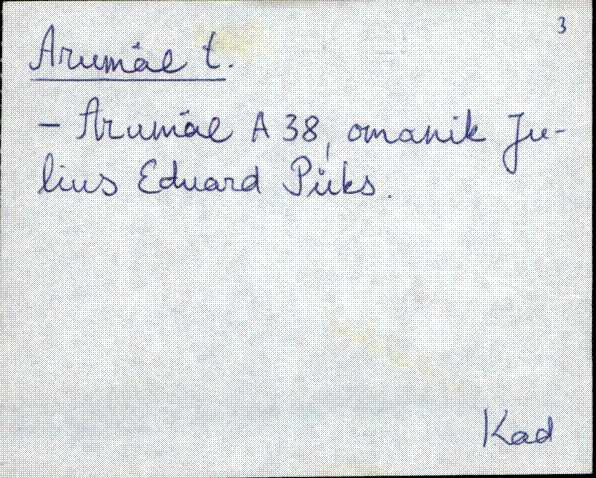 3
Arumäe t.
- Arumäe A 38, omanik Ju-
lius Eduard Püks.
Kad